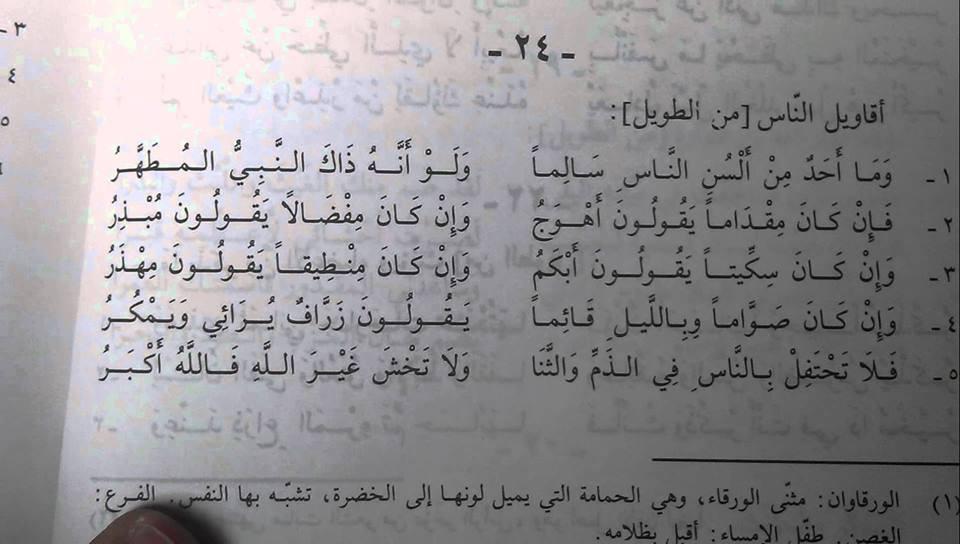 - ٢٤ -
أقاويل النّاس [من الطويل]:
١ - وَمَا أَحَدٌ مِنْ أَلْسُنِ النَّاسِ سَالِماً وَلَوْ أَنَّهُ ذَاكَ النَّبِيُّ المُطَهَّرُ
٢ - فَإِنْ كَانَ مِقْدَاماً يَقُولُونَ أَهْوَجُ وَإِنْ كَانَ مِفْضَالاً يَقُولُونَ مُبْذِرُ
٣ - وَإِنْ كَانَ سِكِّيتاً يَقُولُونَ أَبْكَمُ وَإِنْ كَانَ مِنْطِيقاً يَقُولُونَ مِهْذَرُ
٤ - وَإِنْ كَانَ صَوَّاماً وَبِاللَّيلِ قَائِماً يَقُولُونَ زَرَّافٌ يُرَائِي وَيَمْكُرُ
٥ - فَلاَ تَحْتَفِلْ بِالنَّاسِ فِي الذَّمِّ وَالثَّنَا وَلاَ تَخْشَ غَيْرَ اللهِ فَاللَّهُ أَكْبَرُ
(١) الورقاوان: مثنّى الورقاء، وهي الحمامة التي يميل لونها إلى الخضرة، تشبّه بها النفس. الفرع:
الغصن. طفّل الإمساء: أقبل بظلامه.
٣ -
٤
٥